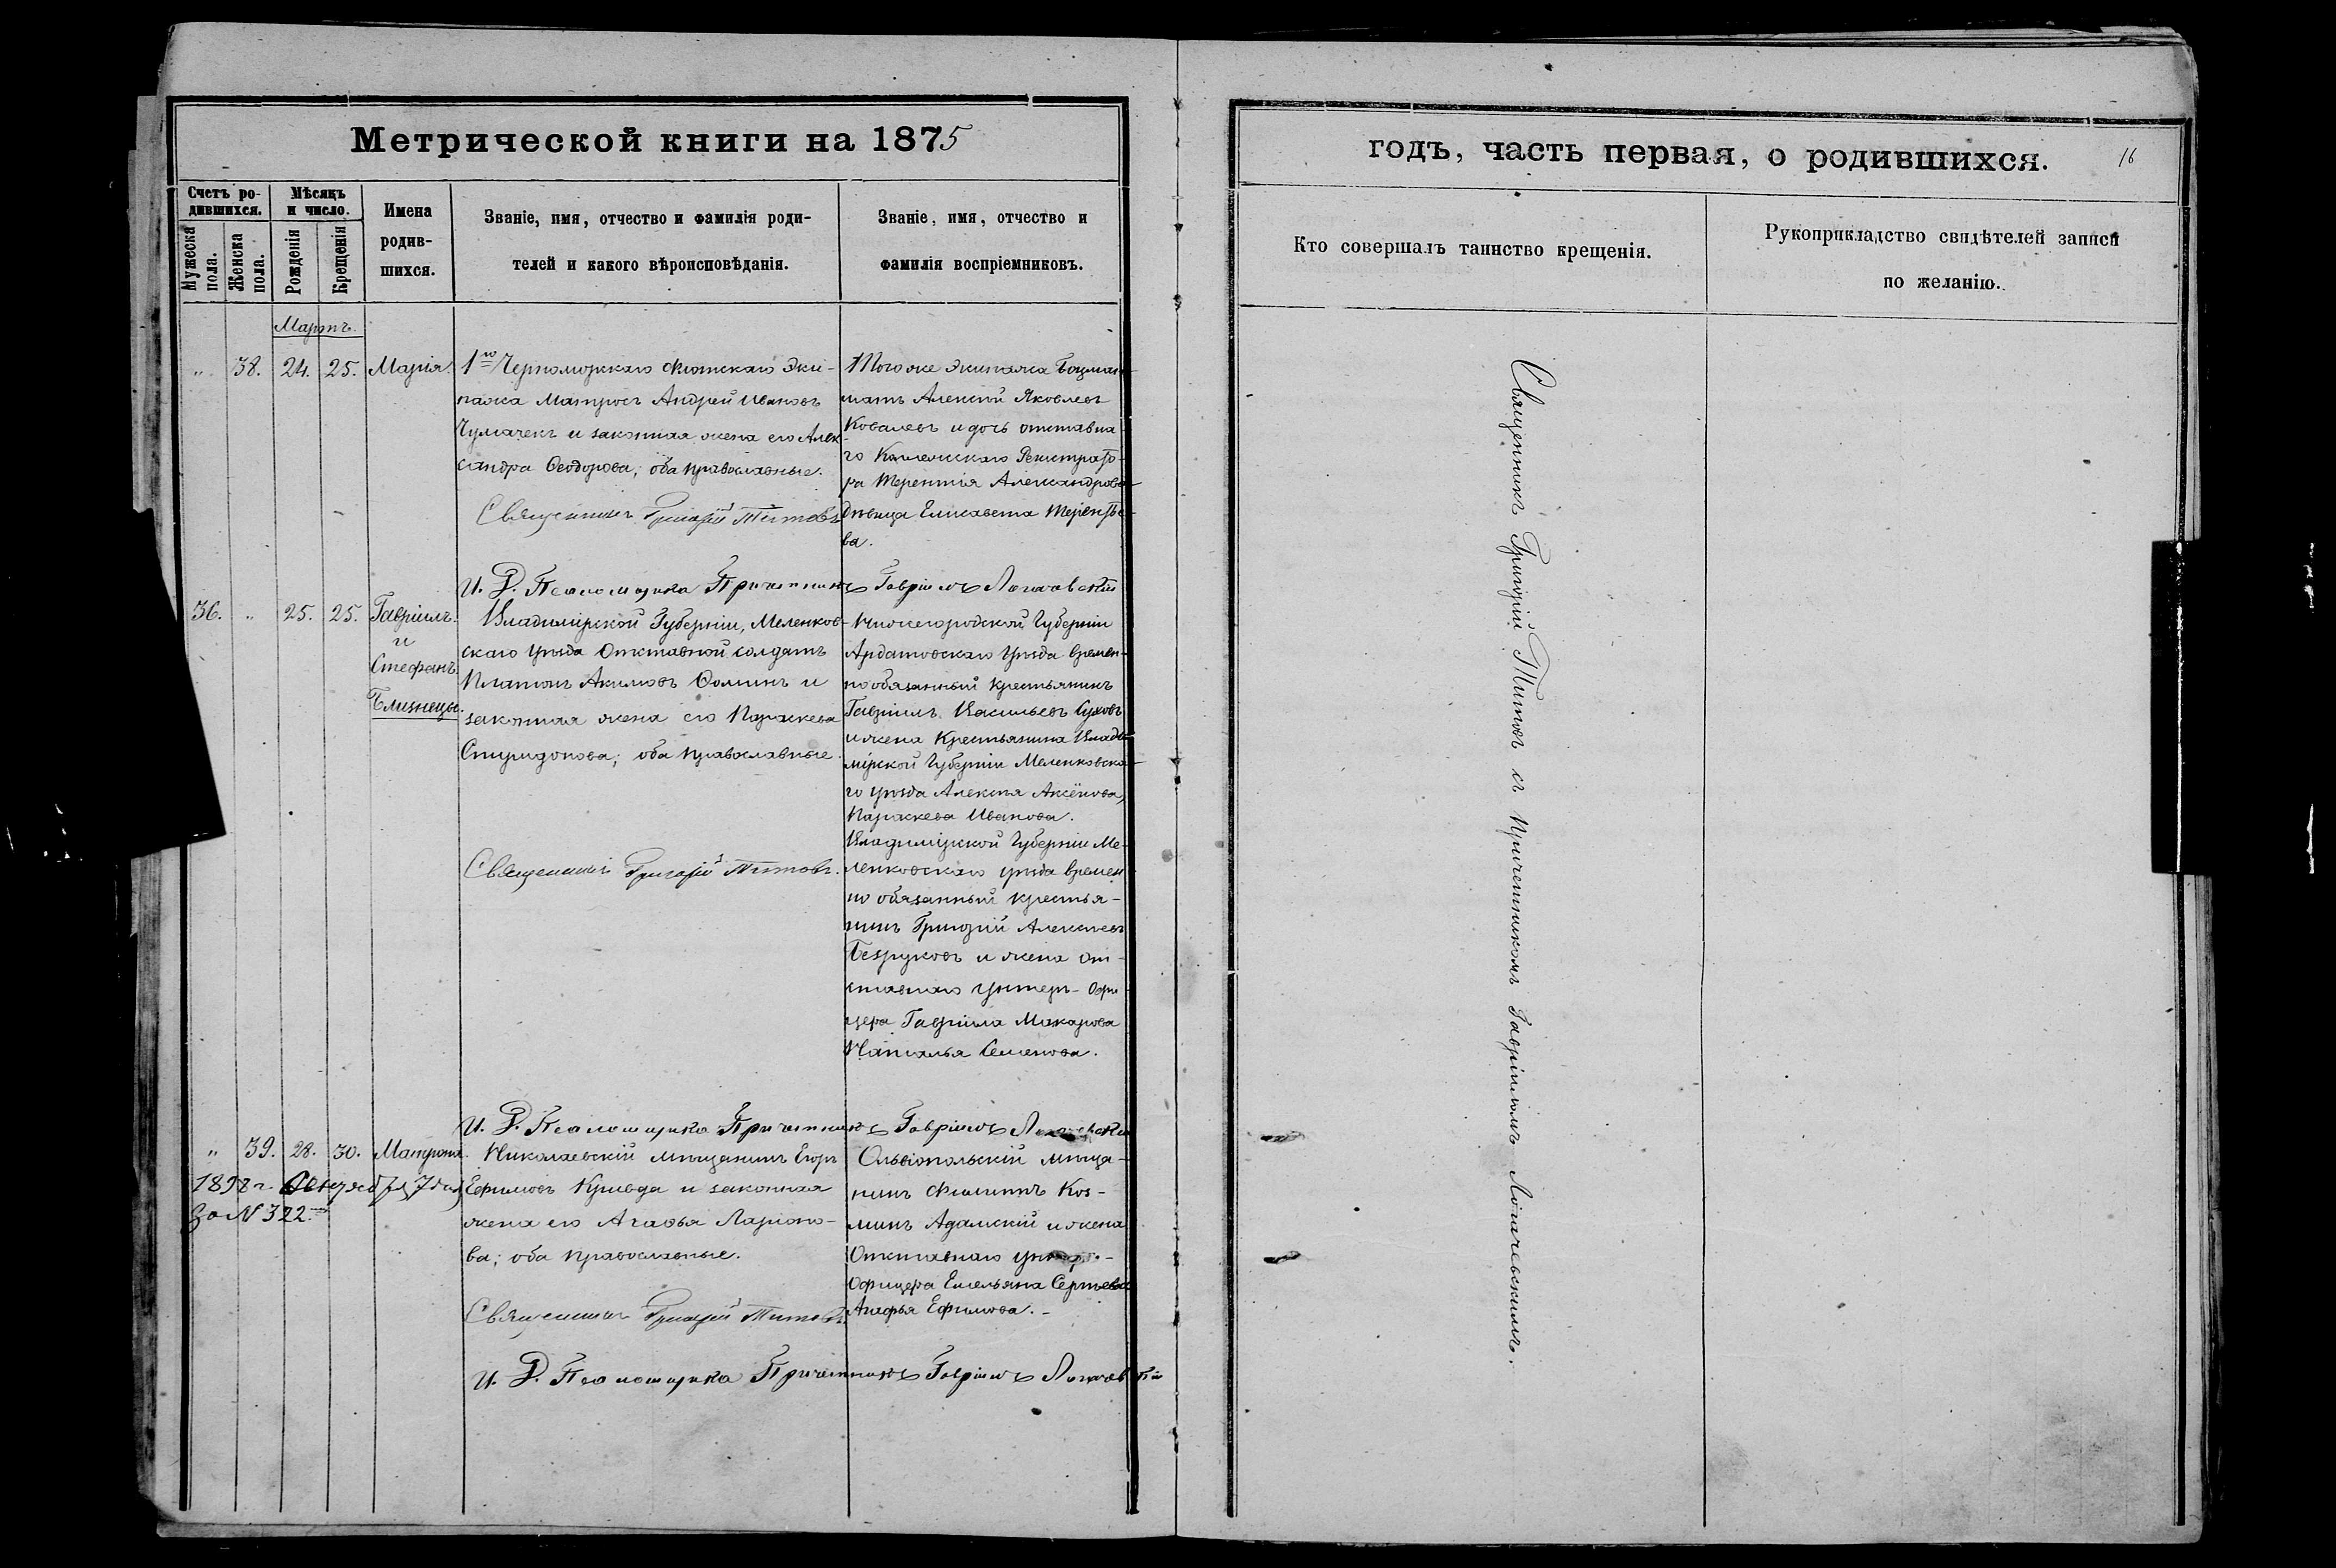 Метрической книги на 1875
Счетъ ро-
дившихся.
Мужеска
пола.
Женска
пола.
Мѣсяцъ
и число.
Рожденія
Крещенія
Имена
родив-
шихся.
Званіе, имя, отчество и фамилія роди-
телей и какого вѣроисповѣданія.
Званіе, имя, отчество и
фамилія воспріемниковъ.
Мартъ.
" 38. 24. 25. Марія.
1го Черноморскаго Флотскаго Эки-
пажа Матросъ Андрей Ивановъ
Чумаченъ и законная жена его Алек-
сандра Ѳеодорова, оба православные.
Священникъ Григорій Титовъ
Тогоже Экипажа Боцман-
матъ Алексѣй Яковлевъ
Ковалевъ и дочь отставна-
го Коллежскаго Регистрато-
ра Терентія Александрова
дѣвица Елисавета Терентье-
ва.
И. Д. Псаломщика Причетникъ Гавріилъ
36. " 25. 25. Гавріилъ.
и
Стефанъ.
Близнецы.
Владимірской Губерніи, Меленков-
скаго Уѣзда Отставной солдатъ
Платонъ Акимовъ Ѳоминъ и
законная жена его Параскева
Спиридонова; оба православные.
Священникъ Григорій Титовъ.
Нижегородской Губерніи
Ардатовскаго Уѣзда времен-
нообязанный крестьянинъ
Гавріилъ Васильевъ Суховъ
и жена Крестьянина Влади-
мірской Губерніи Меленковска-
го уѣзда Алексѣя Аксёнова,
Параскева Иванова.
Владимірской Губерніи Ме-
ленковскаго уѣзда времен
но обязанный крестья-
нинъ Григорій Алексѣевъ
Безруковъ и жена от-
ставнаго Унтеръ-Офи-
цера Гавріила Макарова
Наталья Семенова.
И. Д. Псаломщика Причетникъ Гавріилъ
" 39. 28. 30. Матрона.
1898 г. Октября 7 дня
За № 322
Николаевскій мѣщанинъ Егоръ
Ефимовъ Кривда и законная
жена его Агафья Ларіоно-
ва; оба православные.
Священникъ Григорій Титовъ.
Ольвіопольскій мѣща-
нинъ Филиппъ Коз-
минъ Адамскій и жена
Отставнаго
Офицера Емельяна Сергѣева
Агафья Ефимова.-
И. Д. Псаломщика Причетникъ Гавріилъ
годъ, часть первая, о родившихся.
16
Кто совершалъ таинство крещенія.
Рукоприкладство свидѣтелей записи
по желанію.
Священникъ Григорій Титовъ съ Причетникомъ Гавріиломъ Логачевскимъ.